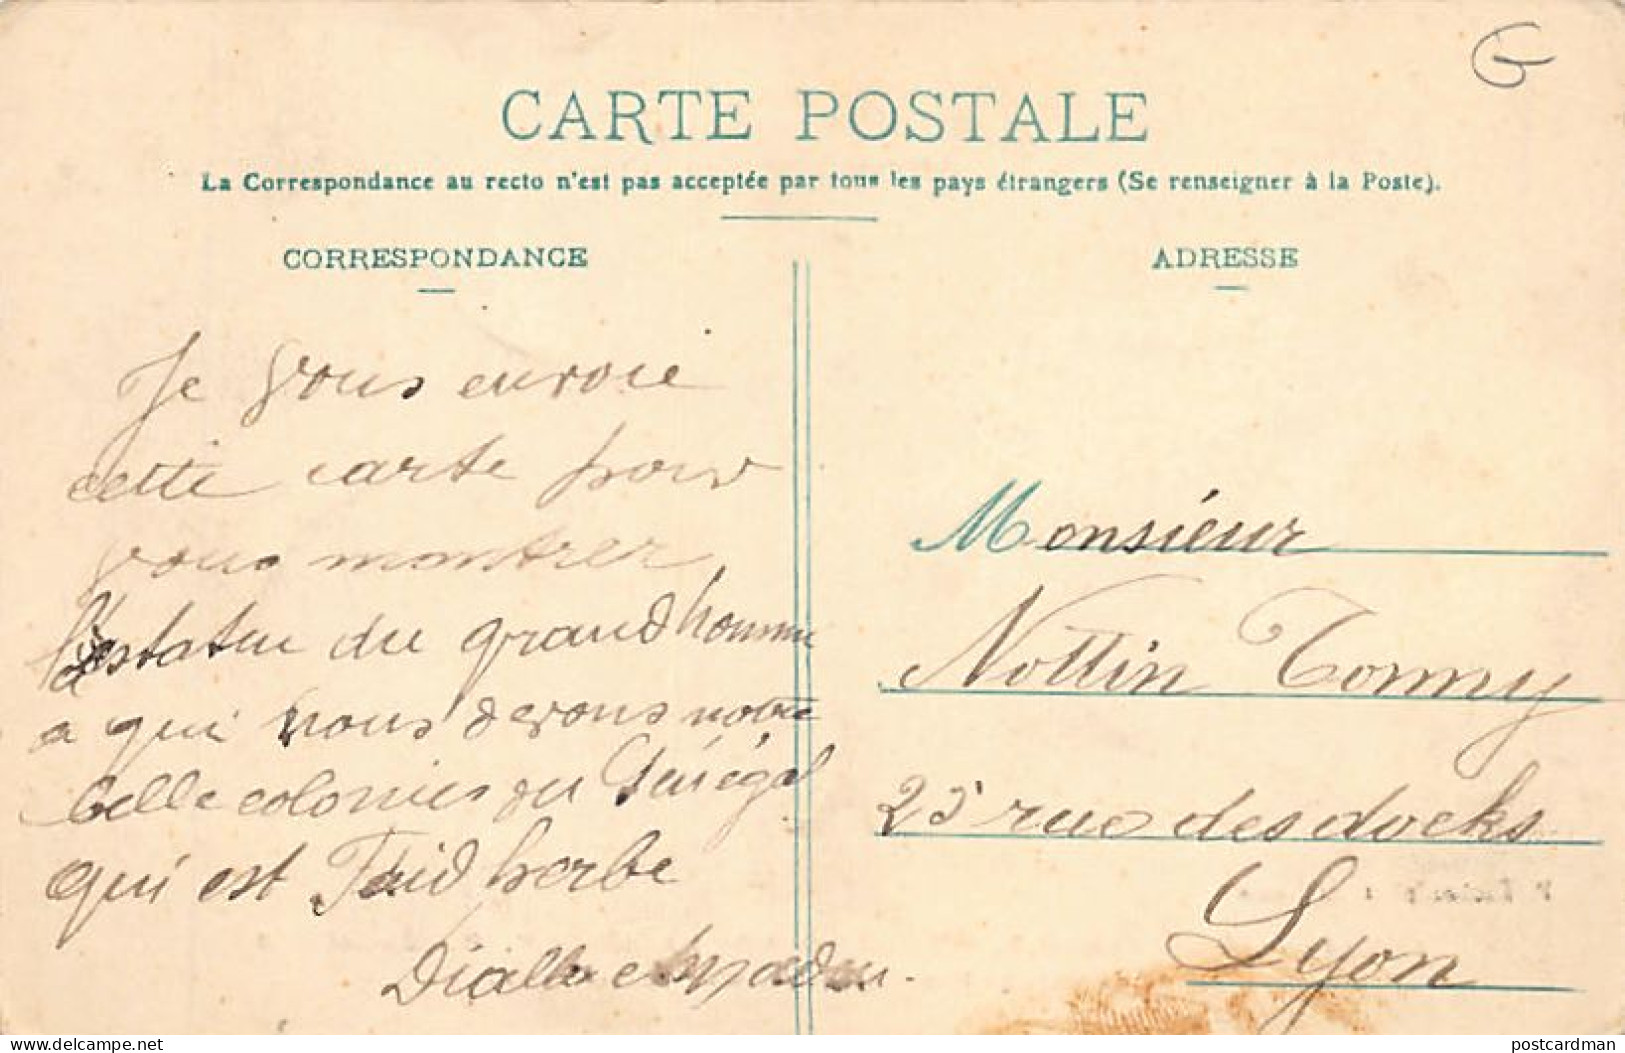 G
CARTE POSTALE
La Correspondance au recto n'est pas acceptée par tous les pays étrangers (Se renseigner à la Poste).
CORRESPONDANCE
Je vous envoie
cette carte pour
vous montrer
du grand homme
a qui nous devons notre
belle colonies du Sénégal
qui est Faidherbe
Diallo
ADRESSE
Monsieur
Nottin Tonny
25 rue des docks
Lyon
Visit our web site delcampe.net
postcardman